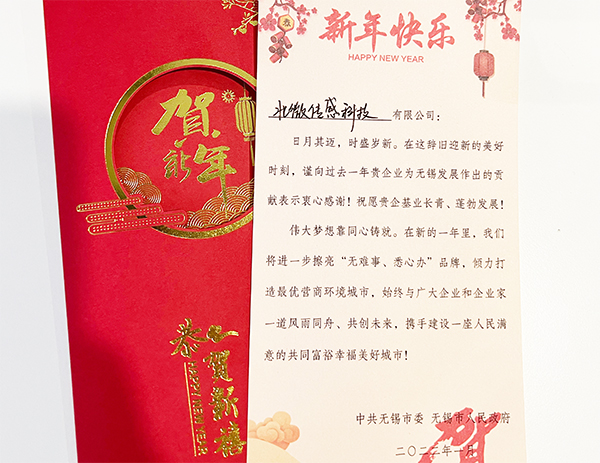 贺
新年
恭贺新禧
HAPPY NEW YEAR
春
新年快乐
HAPPY NEW YEAR
北微传感科技 有限公司：
日月其迈，时盛岁新。在这辞旧迎新的美好
时刻，谨向过去一年贵企业为无锡发展作出的贡
献表示衷心感谢！祝愿贵企基业长青、蓬勃发展！
伟大梦想靠同心铸就。在新的一年里，我们
将进一步擦亮“无难事、悉心办”品牌，倾力打
造最优营商环境城市，始终与广大企业和企业家
一道风雨同舟、共创未来，携手建设一座人民满
意的共同富裕幸福美好城市！
中共无锡市委 无锡市人民政府
二〇二二年一月
贺